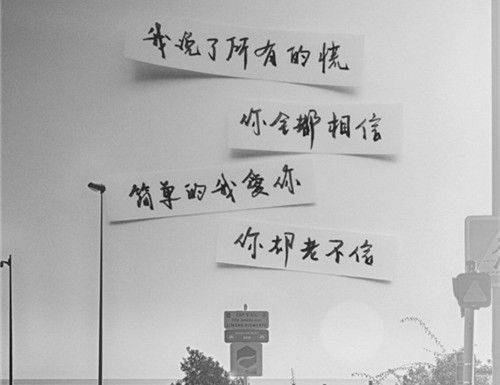 我说了所有的谎
你全都相信
简单的我愛你
你却老不信